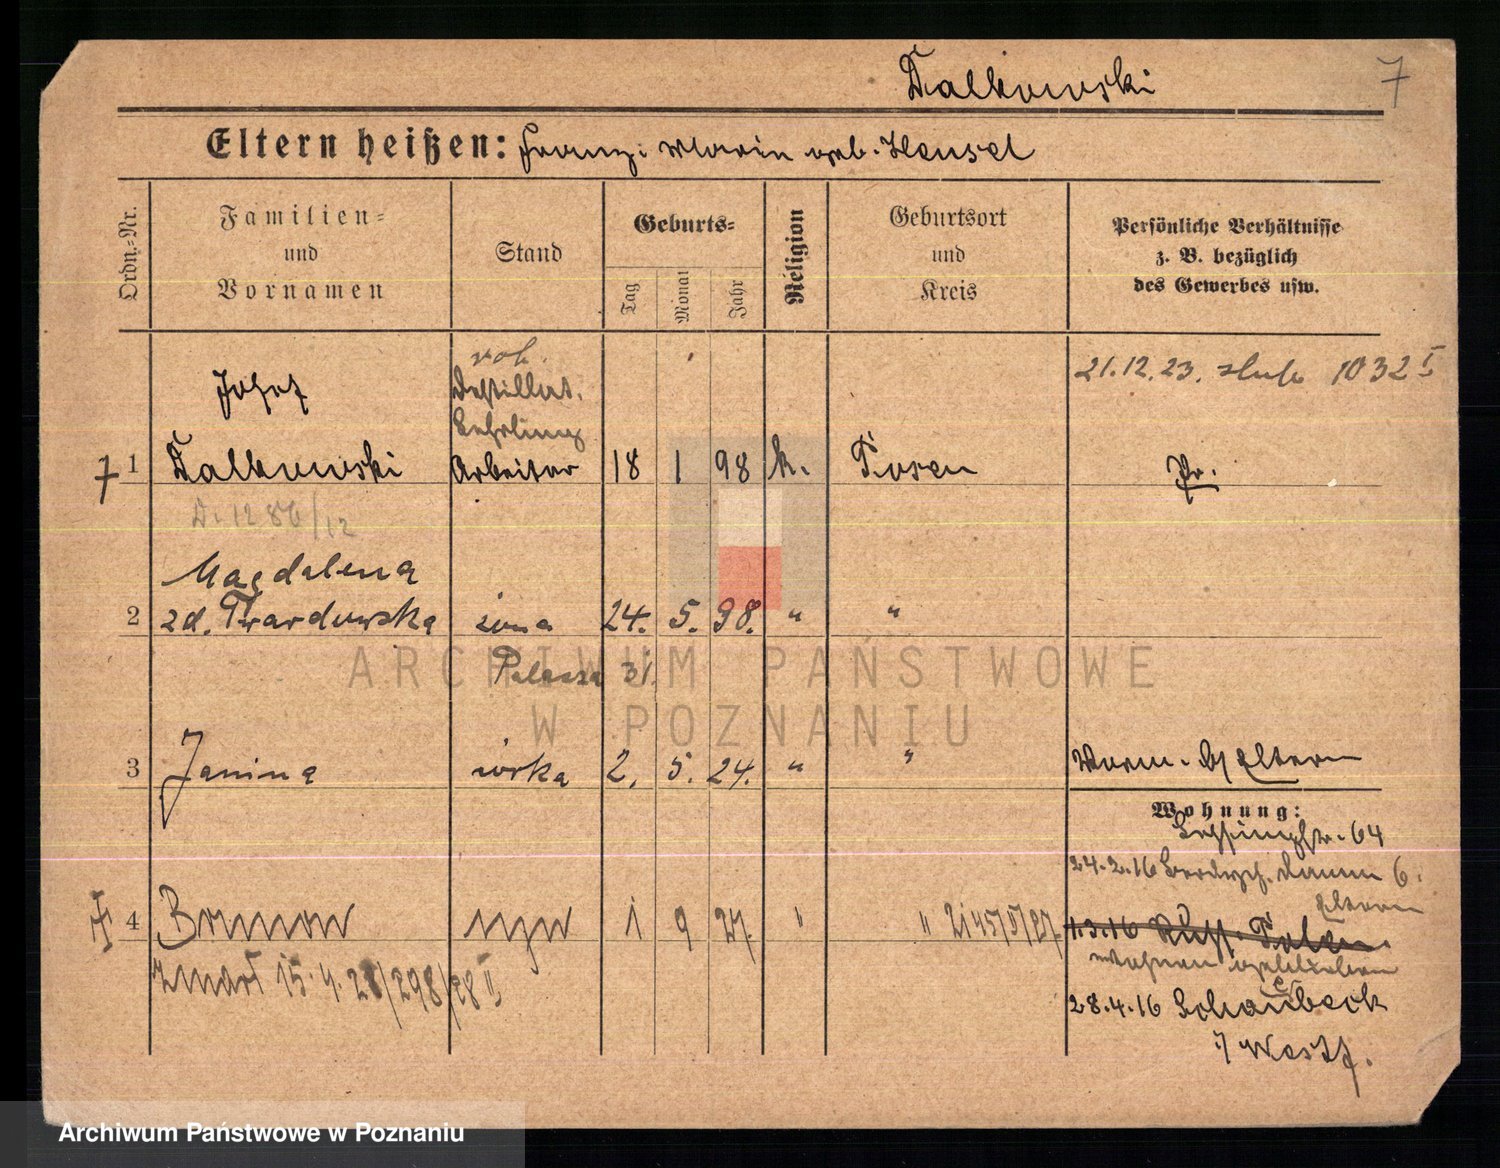 Dalkowski 7
Eltern heißen: Franz i Maria geb. Hensel
Ordn.-Nr.
Familien-
und
Vornamen
Stand
Geburts-
Tag
Monat
Jahr
Religion
Geburtsort
und
Kreis
Persönliche Verhältnisse
z. B. bezüglich
des Gewerbes usw.
21.12.23. 1032 I
Josef
Destillat.
Lehrling
1 Dalkowski Arbeiter 18 1 98 k. Posen Pr.
D. 1286/12
Magdalena
2 zd. Twardowska żona 24. 5. 98. " "
31.
3 Janina córka 2. 5. 24. " " Worm. b/ Eltern
Wohnung:
Lessingstr. 64
24.2.16 6.
Eltern
4 syn 1 9 27. " "
1.3.16 Russ. Polen
zmarł 15.4.28/298/28 II
28.4.16
i/ Westf.
ARCHIWUM PAŃSTWOWE
W POZNANIU
Archiwum Państwowe w Poznaniu